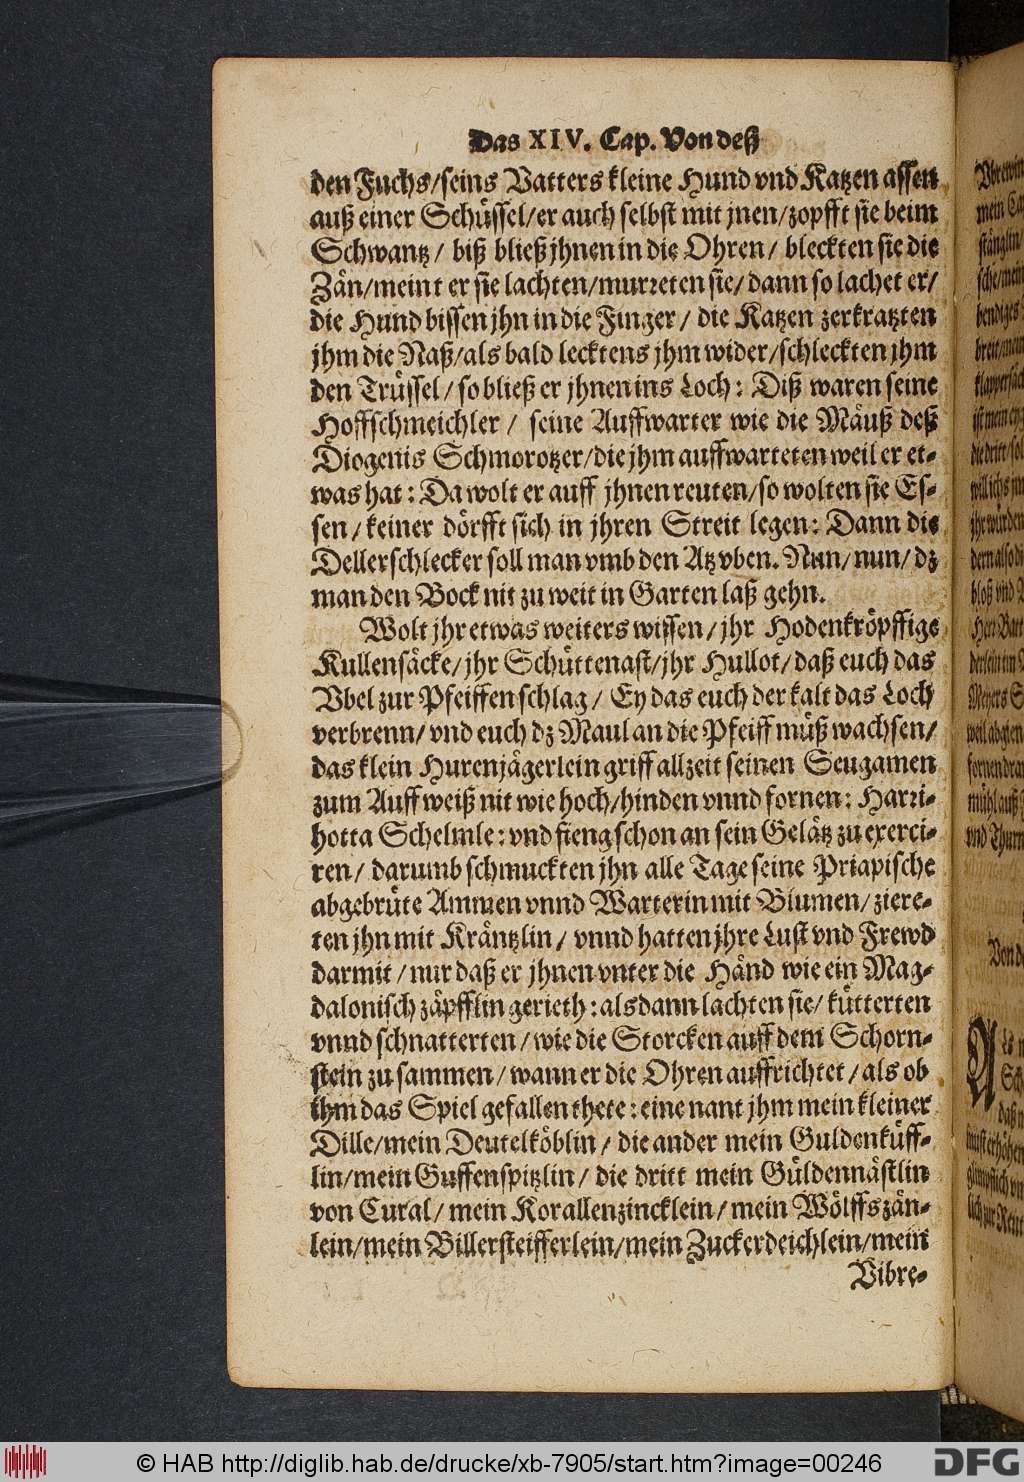 Das XIV. Cap. Von deß
den Fuchs/seins Vatters kleine Hund vnd Katzen assen
auß einer Schüssel/er auch selbst mit jnen/zopfft sie beim
Schwantz/ biß bließ jhnen in die Ohren/ bleckten sie die
Zän/meint er sie lachten/murreten sie/dann so lachet er/
die Hund bissen jhn in die Finger/ die Katzen zerkratzten
jhm die Naß/als bald lecktens jhm wider/schleckten jhm
den Trüssel/so bließ er jhnen ins Loch: Diß waren seine
Hoffschmeichler/ seine Auffwarter wie die Mäuß deß
Diogenis Schmorotzer/die jhm auffwarteten weil er et-
was hat: Da wolt er auff jhnen reuten/so wolten sie Es-
sen/keiner dörfft sich in jhren Streit legen: Dann die
Dellerschlecker soll man vmb den Atz vben. Nun/nun/dz
man den Bock nit zu weit in Garten laß gehn.
Wolt jhr etwas weiters wissen/jhr Hodenkröpffige
Kullensäcke/jhr Schüttenast/jhr Hullot/daß euch das
Vbel zur Pfeiffen schlag/ Ey das euch der kalt das Loch
verbrenn/vnd euch dz Maul an die Pfeiff müß wachsen/
das klein Hurenjägerlein griff allzeit seinen Seugamen
zum Auff weiß nit wie hoch/hinden vnnd fornen: Harri-
hotta Schelmle: vnd fieng schon an sein Gelätz zu exerci-
ren/ darumb schmuckten jhn alle Tage seine Priapische
abgebrüte Ammen vnnd Warterin mit Blumen/ziere-
ten jhn mit Kräntzlin/ vnnd hatten jhre Lust vnd Frewd
darmit/nur daß er jhnen vnter die Händ wie ein Mag-
dalonisch zäpfflin gerieth: alsdann lachten sie/kütterten
vnnd schnatterten/wie die Storcken auff dem Schorn-
stein zusammen/wann er die Ohren auffrichtet/als ob
ihm das Spiel gefallen thete: eine nant jhm mein kleiner
Dille/mein Deutelköblin/ die ander mein Guldenküff-
lin/mein Guffenspitzlin/ die dritt mein Güldennästlin
von Cural/mein Korallenzincklein/mein Wölffszän-
lein/mein Billersteifferlein/mein Zuckerdeichlein/mein
Vibre-
© HAB http://diglib.hab.de/drucke/xb-7905/start.htm?image=00246
DFG